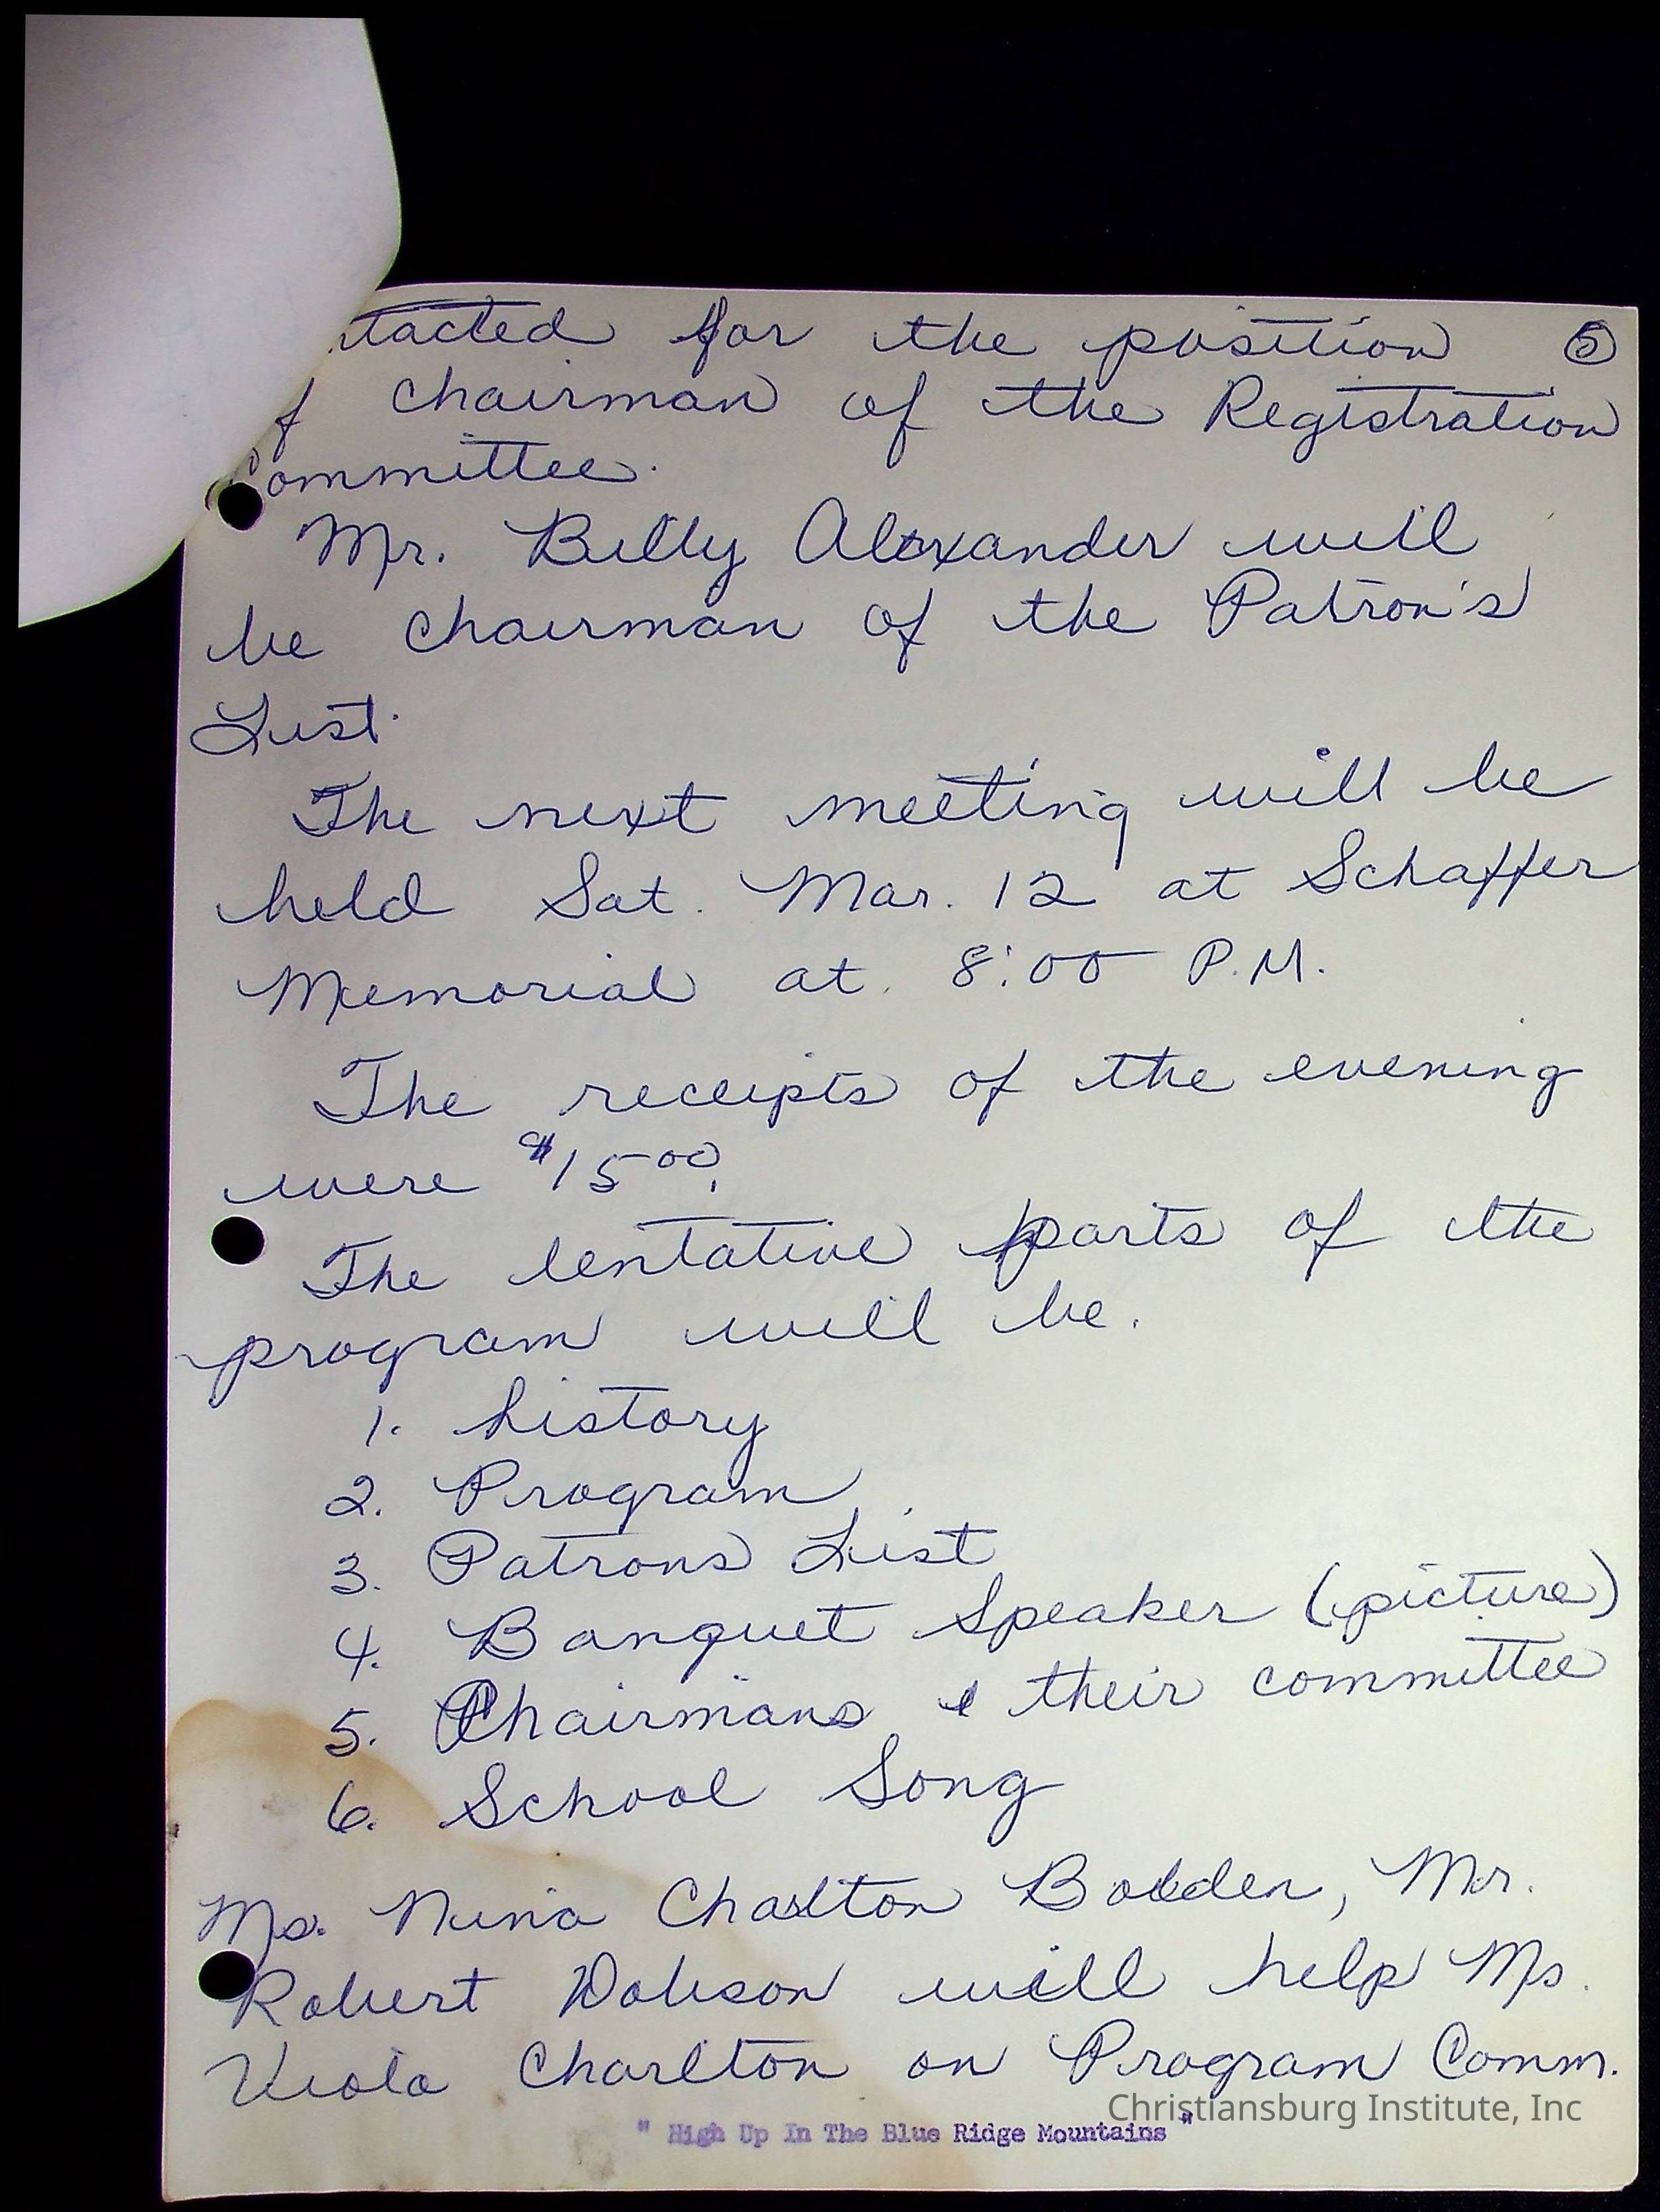 ntacted for the position ⑤
f chairman of the Registration
Committee.
Mr. Billy Alexander will
be chairman of the Patron's
List.
The next meeting will be
held Sat. Mar. 12 at Schaffer
Memorial at 8:00 P.M.
The receipts of the evening
were $15.00.
The tentative parts of the
program will be.
1. history
2. Program
3. Patrons List
4. Banquet Speaker (picture)
5. Chairmans & their committee
6. School Song
Ms. Nina Charlton Bolden, Mr.
Robert Dobson will help Ms.
Viola Charlton on Program Comm.
Christiansburg Institute, Inc
" High Up In The Blue Ridge Mountains "